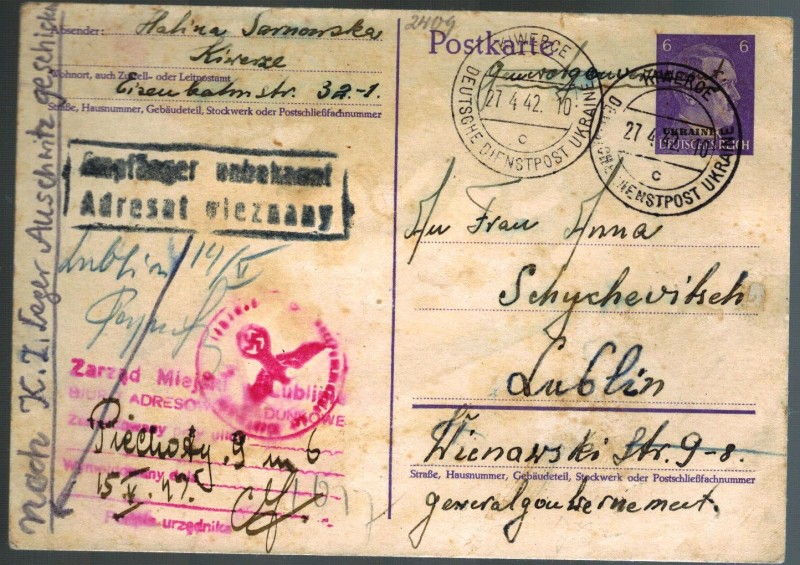 2409
Absender: Halina Sarnowska
Kiwerze
Wohnort, auch Zustell- oder Leitpostamt
Eisenbahnstr. 32-1.
Straße, Hausnummer, Gebäudeteil, Stockwerk oder Postschließfachnummer
Postkarte
Generalgouvernement
6 6
UKRAINE
DEUTSCHES REICH
KIWERCE
27.4.42. 10
c
DEUTSCHE DIENSTPOST UKRAINE
KIWERCE
27.4.42. 10
c
DEUTSCHE DIENSTPOST UKRAINE
Empfänger unbekannt
Adresat nieznany
Lublin 14/V
nach K. Z. Lager Auschwitz geschickt
An Frau Anna
Schychevitsch
Lublin
Wienawski Str. 9-8.
Straße, Hausnummer, Gebäudeteil, Stockwerk oder Postschließfachnummer
Generalgouvernement.
Zarząd Miejski Lublin
BIURO ADRESOWE
Piechoty 9 m 6
15 V. 42.
urzędnika